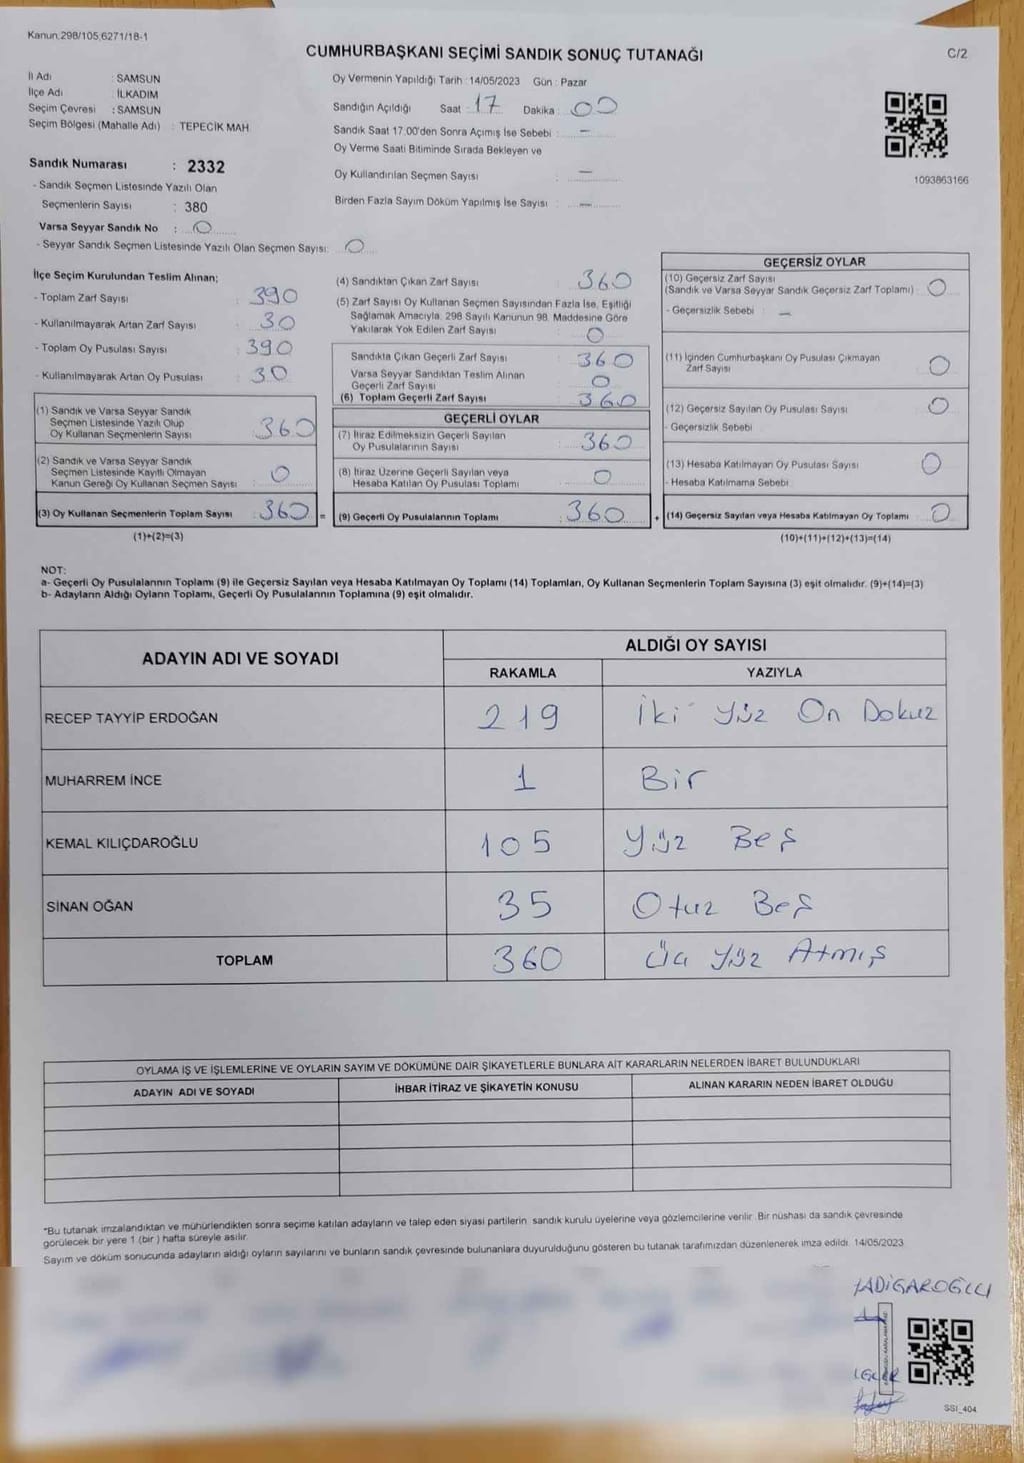 Kanun.298/105,6271/18-1
CUMHURBAŞKANI SEÇİMİ SANDIK SONUÇ TUTANAĞI
C/2
İl Adı : SAMSUN
İlçe Adı : İLKADIM
Seçim Çevresi : SAMSUN
Seçim Bölgesi (Mahalle Adı) : TEPECİK MAH
Oy Vermenin Yapıldığı Tarih : 14/05/2023 Gün : Pazar
Sandığın Açıldığı Saat : 17 Dakika : 00
Sandık Saat 17:00'den Sonra Açımış İse Sebebi : —
Oy Verme Saati Bitiminde Sırada Bekleyen ve
Oy Kullandırılan Seçmen Sayısı : —
Birden Fazla Sayım Döküm Yapılmış İse Sayısı : —
1093863166
Sandık Numarası : 2332
- Sandık Seçmen Listesinde Yazılı Olan
Seçmenlerin Sayısı : 380
Varsa Seyyar Sandık No : 0
- Seyyar Sandık Seçmen Listesinde Yazılı Olan Seçmen Sayısı: 0
İlçe Seçim Kurulundan Teslim Alınan;
- Toplam Zarf Sayısı : 390
- Kullanılmayarak Artan Zarf Sayısı : 30
- Toplam Oy Pusulası Sayısı : 390
- Kullanılmayarak Artan Oy Pusulası : 30
(1) Sandık ve Varsa Seyyar Sandık
Seçmen Listesinde Yazılı Olup
Oy Kullanan Seçmenlerin Sayısı : 360
(2) Sandık ve Varsa Seyyar Sandık
Seçmen Listesinde Kayıtlı Olmayan
Kanun Gereği Oy Kullanan Seçmen Sayısı : 0
(3) Oy Kullanan Seçmenlerin Toplam Sayısı : 360 =
(1)+(2)=(3)
(4) Sandıktan Çıkan Zarf Sayısı : 360
(5) Zarf Sayısı Oy Kullanan Seçmen Sayısından Fazla İse, Eşitliği
Sağlamak Amacıyla, 298 Sayılı Kanunun 98. Maddesine Göre
Yakılarak Yok Edilen Zarf Sayısı : 0
Sandıkta Çıkan Geçerli Zarf Sayısı : 360
Varsa Seyyar Sandıktan Teslim Alınan
Geçerli Zarf Sayısı : 0
(6) Toplam Geçerli Zarf Sayısı : 360
GEÇERLİ OYLAR
(7) İtiraz Edilmeksizin Geçerli Sayılan
Oy Pusulalarının Sayısı : 360
(8) İtiraz Üzerine Geçerli Sayılan veya
Hesaba Katılan Oy Pusulası Toplamı : 0
(9) Geçerli Oy Pusulalarının Toplamı : 360 +
GEÇERSİZ OYLAR
(10) Geçersiz Zarf Sayısı
(Sandık ve Varsa Seyyar Sandık Geçersiz Zarf Toplamı) : 0
- Geçersizlik Sebebi : —
(11) İçinden Cumhurbaşkanı Oy Pusulası Çıkmayan
Zarf Sayısı : 0
(12) Geçersiz Sayılan Oy Pusulası Sayısı : 0
- Geçersizlik Sebebi
(13) Hesaba Katılmayan Oy Pusulası Sayısı : 0
- Hesaba Katılmama Sebebi
(14) Geçersiz Sayılan veya Hesaba Katılmayan Oy Toplamı : 0
(10)+(11)+(12)+(13)=(14)
NOT:
a- Geçerli Oy Pusulalarının Toplamı (9) ile Geçersiz Sayılan veya Hesaba Katılmayan Oy Toplamı (14) Toplamları, Oy Kullanan Seçmenlerin Toplam Sayısına (3) eşit olmalıdır. (9)+(14)=(3)
b- Adayların Aldığı Oyların Toplamı, Geçerli Oy Pusulalarının Toplamına (9) eşit olmalıdır.
ADAYIN ADI VE SOYADI
ALDIĞI OY SAYISI
RAKAMLA YAZIYLA
RECEP TAYYİP ERDOĞAN 219 İki Yüz On Dokuz
MUHARREM İNCE 1 Bir
KEMAL KILIÇDAROĞLU 105 Yüz Beş
SİNAN OĞAN 35 Otuz Beş
TOPLAM 360 Üç Yüz Atmış
OYLAMA İŞ VE İŞLEMLERİNE VE OYLARIN SAYIM VE DÖKÜMÜNE DAİR ŞİKAYETLERLE BUNLARA AİT KARARLARIN NELERDEN İBARET BULUNDUKLARI
ADAYIN ADI VE SOYADI İHBAR İTİRAZ VE ŞİKAYETİN KONUSU ALINAN KARARIN NEDEN İBARET OLDUĞU
*Bu tutanak imzalandıktan ve mühürlendikten sonra seçime katılan adayların ve talep eden siyasi partilerin sandık kurulu üyelerine veya gözlemcilerine verilir. Bir nüshası da sandık çevresinde
görülecek bir yere 1 (bir ) hafta süreyle asılır.
Sayım ve döküm sonucunda adayların aldığı oyların sayılarını ve bunların sandık çevresinde bulunanlara duyurulduğunu gösteren bu tutanak tarafımızdan düzenlenerek imza edildi. 14/05/2023
SSI_404